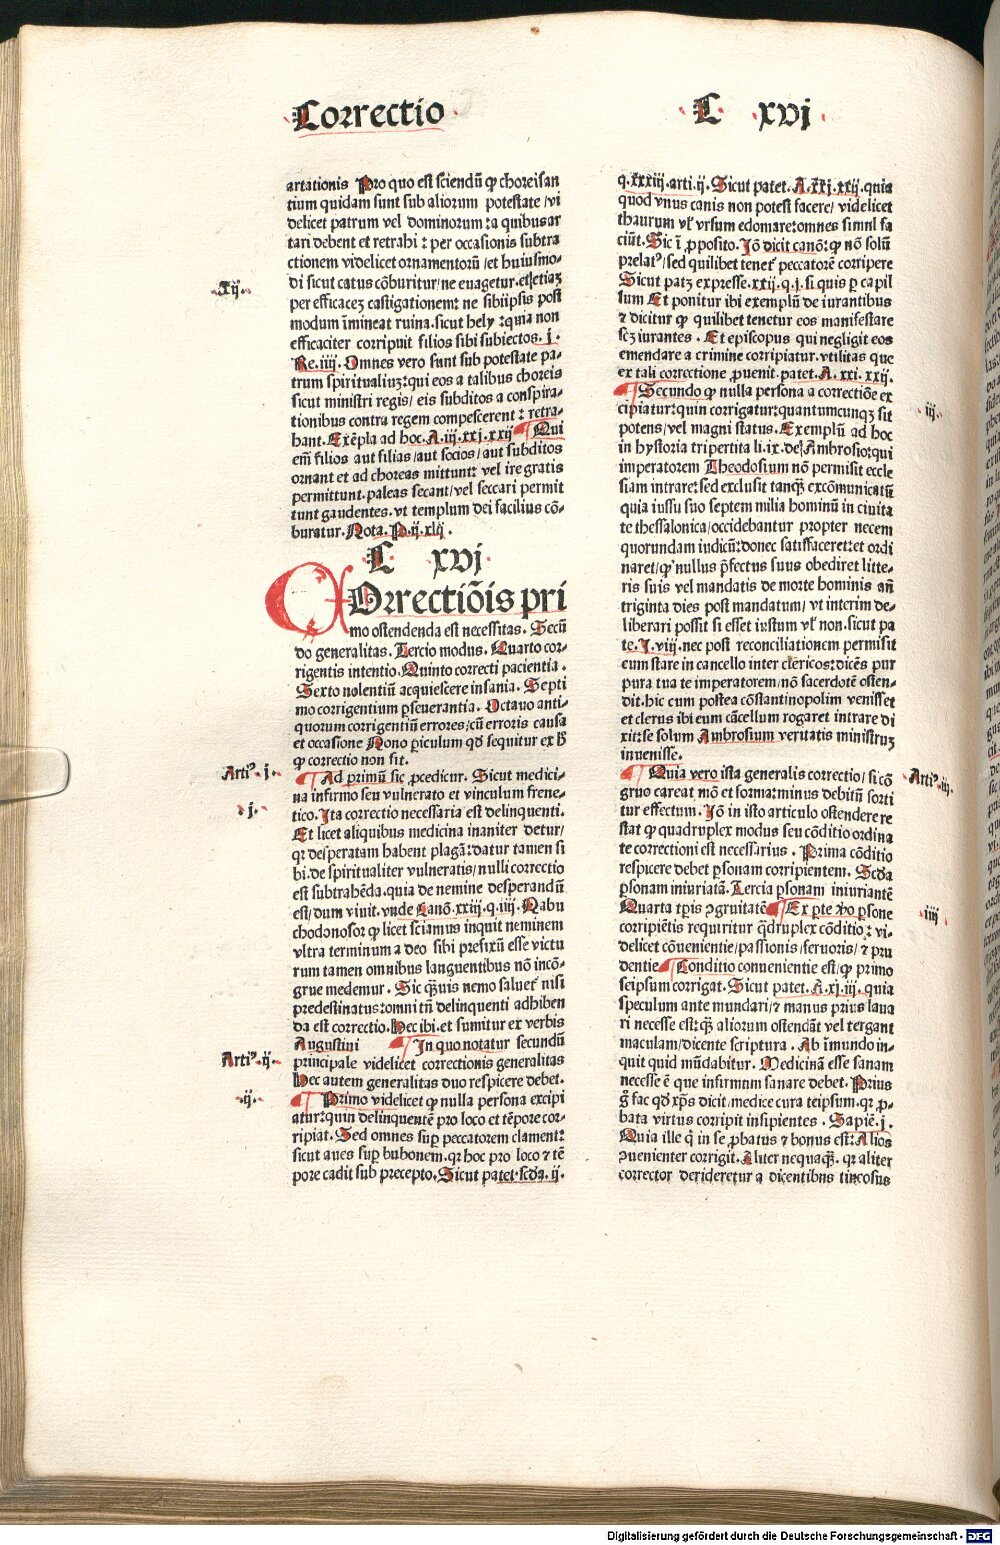 Correctio
C xvj
artationis Pro quo est sciendū ꝙ choreisan
tium quidam sunt sub aliorum potestate/vi
delicet patrum vel dominorum: a quibus ar
tari debent et retrahi : per occasionis subtra
ctionem videlicet ornamentorū/et huiusmo-
di sicut catus cōburitur/ne euagetur. et etiaꝫ
per efficaceꝫ castigationem: ne sibiipsis post
modum īmineat ruina. sicut hely : quia non
efficaciter corripuit filios sibi subiectos. j.
Re. iiij. Omnes vero sunt sub potestate pa-
trum spiritualiuꝫ: qui eos a talibus choreis
sicut ministri regis/ eis subditos a conspira-
tionibus contra regem compescerent : retra-
hant. Exēpla ad hoc. A. iij. xxj. xxij Qui
em̄ filios aut filias/aut socios/aut subditos
ornant et ad choreas mittunt: vel ire gratis
permittunt. paleas secant/vel seccari permit
tunt gaudentes. vt templum dei facilius cō-
buratur. Nota. P. ij. xlij.
C xvj
COrrectiōis pri
mo ostendenda est necessitas. Secū
do generalitas. Tercio modus. Quarto cor-
rigentis intentio. Quinto correcti pacientia.
Sexto nolentiū acquiescere insania. Septi
mo corrigentium ꝑseuerantia. Octauo anti-
quorum corrigentiū errores/cū erroris causa
et occasione Nono ꝑiculum qd̄ sequitur ex h̄
ꝙ correctio non fit.
Ad primū sic ꝓceditur. Sicut medici-
na infirmo seu vulnerato et vinculum frene-
tico. Ita correctio necessaria est delinquenti.
Et licet aliquibus medicina inaniter detur/
qꝛ desperatam habent plagā: datur tamen si
bi. de spiritualiter vulneratis/nulli correctio
est subtrahēda. quia de nemine desperandū
est/dum viuit. vnde Canō. xxiij. q. iiij. Nabu
chodonosor ꝙ licet sciamus inquit neminem
vltra terminum a deo sibi prefixū esse victu
rum tamen omnibus languentibus nō incō-
grue medemur. Sic q̄uis nemo saluet̄ nisi
predestinatus: omni tn̄ delinquenti adhiben
da est correctio. Hec ibi. et sumitur ex verbis
Augustini In quo notatur secundū
principale videlicet correctionis generalitas
Hec autem generalitas duo respicere debet.
Primo videlicet ꝙ nulla persona excipi
atur: quin delinquentē pro loco et tēpore cor-
ripiat. Sed omnes suꝑ peccatorem clament:
sicut aues suꝑ bubonem. qꝛ hoc pro loco ⁊ tē
pore cadit sub precepto. Sicut patet. scd̄a. ij.
Xij.
Arti⁹. j.
j.
Arti⁹. ij.
ij.
q. xxxiij. arti. ij. Sicut patet. A. xxj. xxij. quia
quod vnus canis non potest facere/ videlicet
thaurum vl̓ vrsum edomare: omnes simul fa
ciūt. Sic ī ꝓposito. Iō dicit canō: ꝙ nō solū
prelat⁹/sed quilibet tenet̄ peccatorē corripere
Sicut patꝫ expresse. xxij. q. j. si quis ꝑ capil
lum Et ponitur ibi exemplū de iurantibus
⁊ dicitur ꝙ quilibet tenetur eos manifestare
scꝫ iurantes. Et episcopus qui negligit eos
emendare a crimine corripiatur. vtilitas que
ex tali correctione ꝓuenit. patet. A. xxj. xxij.
Secundo ꝙ nulla persona a correctiōe ex
cipiatur: quin corrigatur: quantumcunqꝫ sit
potens/vel magni status. Exemplū ad hoc
in hystoria tripertita li. ix. de Ambrosio: qui
imperatorem Theodosium nō permisit eccle
siam intrare: sed exclusit tanq̄ꝫ excōmunicatū
quia iussu suo septem milia hominū in ciuita
te thessalonica/occidebantur propter necem
quorundam iudicū: donec satisfaceret: et ordi
naret/ꝙ nullus p̄fectus suus obediret litte-
ris suis vel mandatis de morte hominis an̄
triginta dies post mandatum/ vt interim de-
liberari possit si esset iustum vl̓ non. sicut pa
te. J. viij. nec post reconciliationem permisit
eum stare in cancello inter clericos: dicēs pur
pura tua te imperatorem/ nō sacerdotē osten-
dit. hic cum postea cōstantinopolim venisset
et clerus ibi eum cācellum rogaret intrare di
xit: se solum Ambrosium veritatis ministruꝫ
inuenisse.
Quia vero ista generalis correctio/ si cō
gruo careat mō et forma: minus debitū sorti
tur effectum. Iō in isto articulo ostendere re
stat ꝙ quadruplex modus seu cōditio ordina
te correctioni est necessarius. Prima cōditio
respicere debet ꝑsonam corripientem. Scd̄a
ꝑsonam iniuriatā. Tercia ꝑsonam iniuriantē
Quarta tꝑis ꝯgruitatē Ex ꝑte v̄o ꝑsone
corripiētis requiritur q̄druplex cōditio: vi-
delicet cōuenientie/passionis/feruoris/ ⁊ pru
dentie Conditio conuenientie est/ꝙ primo
seipsum corrigat. Sicut patet. A. xj. iij. quia
speculum ante mundari/⁊ manus prius laua
ri necesse est: q̄ꝫ aliorum ostendāt vel tergant
maculam/dicente scriptura. Ab īmundo in-
quit quid mūdabitur. Medicinā esse sanam
necesse ē que infirmum sanare debet. Prius
g̊ fac qd̄ xp̄s dicit/medice cura teipsum. qꝛ ꝓ-
bata virtus corripit insipientes. Sapiē. j.
Quia ille q̇ in se ꝓbatus ⁊ bonus est: Alios
ꝯuenienter corrigit. Aliter nequaq̄ꝫ. qꝛ aliter
corrector derideretur a dicentibus tincosus
iij.
Arti⁹. iij.
iiij
Digitalisierung gefördert durch die Deutsche Forschungsgemeinschaft - DFG